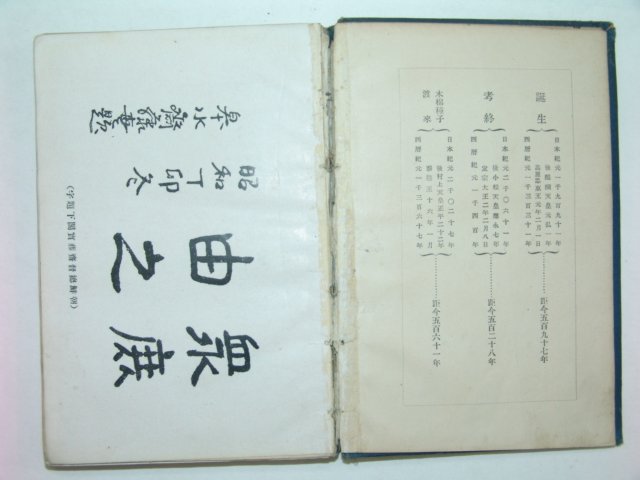 誕生
日本紀元一千九百九十一年
後醍醐天皇元弘一年
高麗忠惠王元年二月一日
西曆紀元一千三百三十一年
距今五百九十七年
考終
日本紀元二千〇六十一年
後小松天皇應永七年
定宗大王二年二月八日
西曆紀元一千四百年
距今五百二十八年
木棉種子
渡來
日本紀元二千〇二十七年
後村上天皇正平二十二年
恭愍王十六年一月
西曆紀元一千三百六十七年
距今五百六十一年
眾庶
由之
昭和丁卯冬
皋水齋藤實題
(朝鮮總督齋藤實閣下題字)